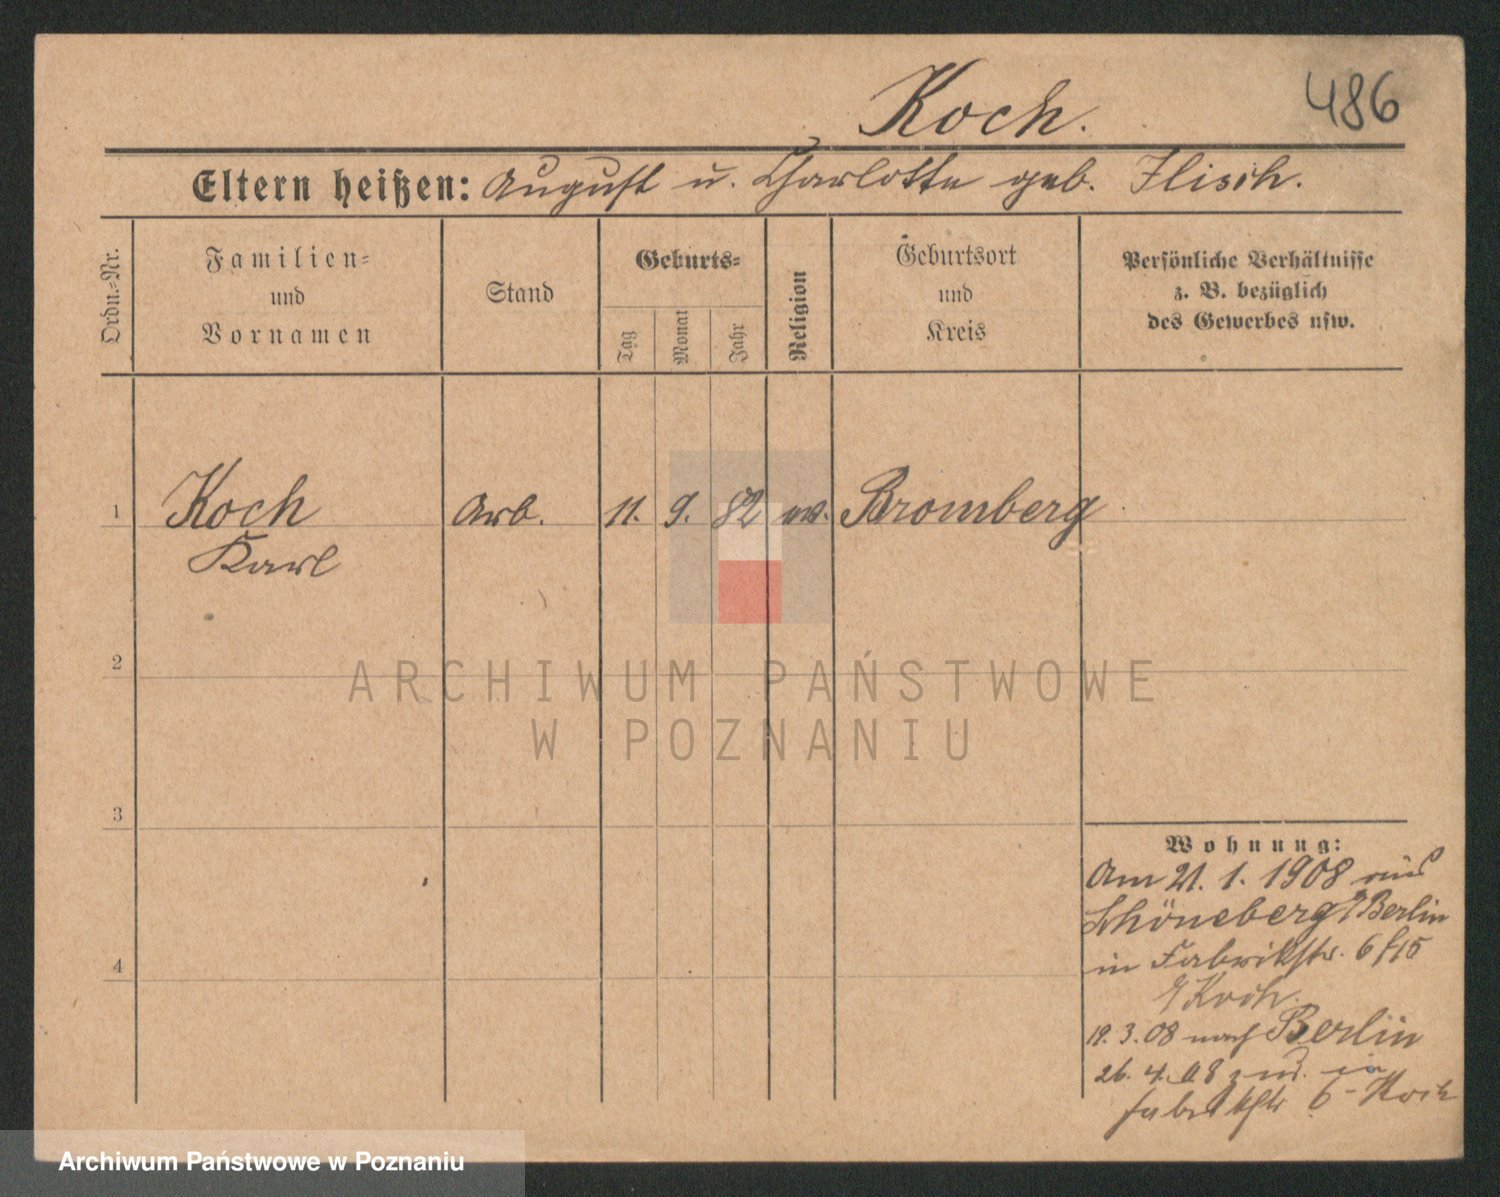 Koch.
486
Eltern heißen: August u. Charlotte geb. Flisch.
Ordn.-Nr.
Familien-
und
Vornamen
Stand
Geburts-
Tag
Monat
Jahr
Religion
Geburtsort
und
Kreis
Persönliche Verhältnisse
z. B. bezüglich
des Gewerbes usw.
1 Koch Arb. 11. 9. 82 ev. Bromberg
Karl
2
ARCHIWUM PAŃSTWOWE
W POZNANIU
3
Wohnung:
Am 21. 1. 1908 aus
Schöneberg / Berlin
in Fabrikstr. 6
4
Koch.
19. 3. 08 nach Berlin
26. 4. 08 in
Fabrikstr 6 - Koch
Archiwum Państwowe w Poznaniu